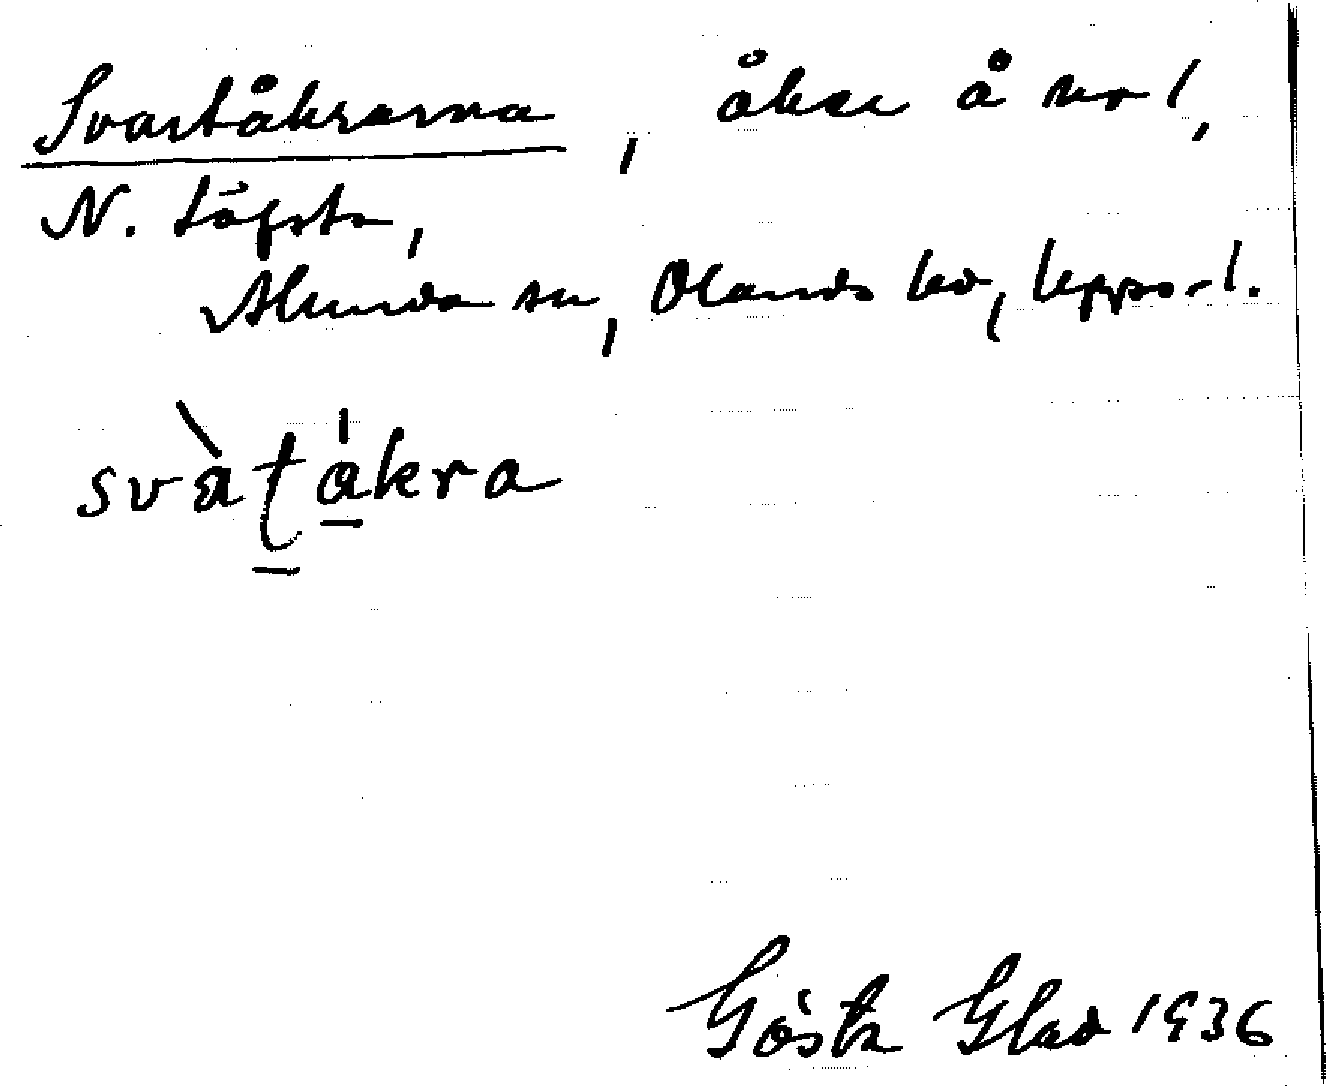 Svartåkrarna, åker å nr 1,
N. Löfsta,
Alunda sn, Olands hd, Upps. l.
svàtákra
Gösta Glad 1936